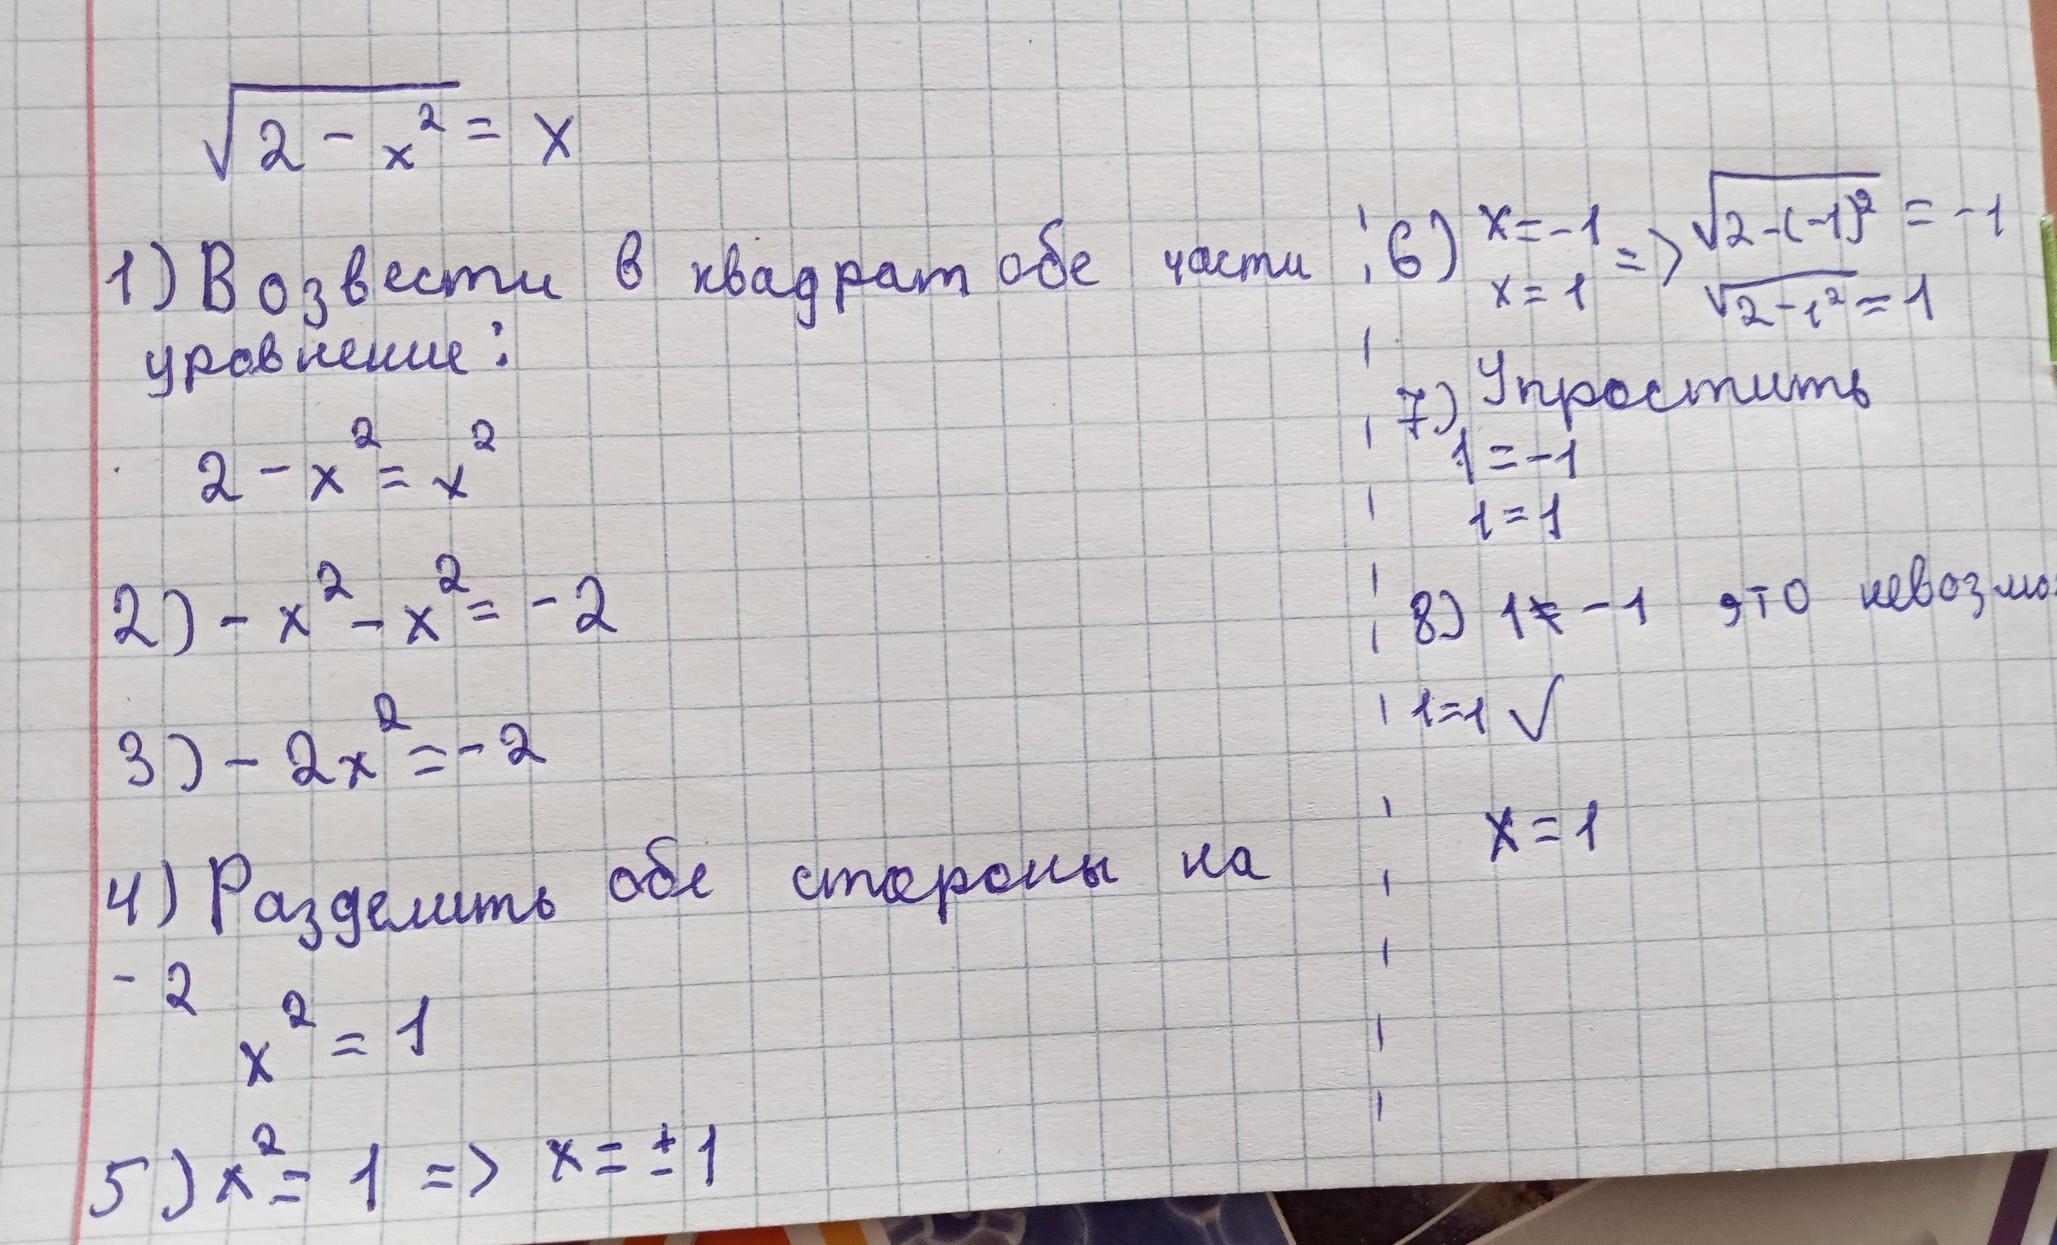 √2 - x² = x
1) Возвести в квадрат обе части
уровнение:
2 - x² = x²
2) - x² - x² = -2
3) - 2x² = -2
4) Разделить обе стороны на
-2
x² = 1
5) x² = 1 => x = ±1
6) x = -1 => √2-(-1)² = -1
x = 1 √2-1² = 1
7) Упростить
1 = -1
1 = 1
8) 1 ≠ -1 это невозмо
1=1 √
x = 1